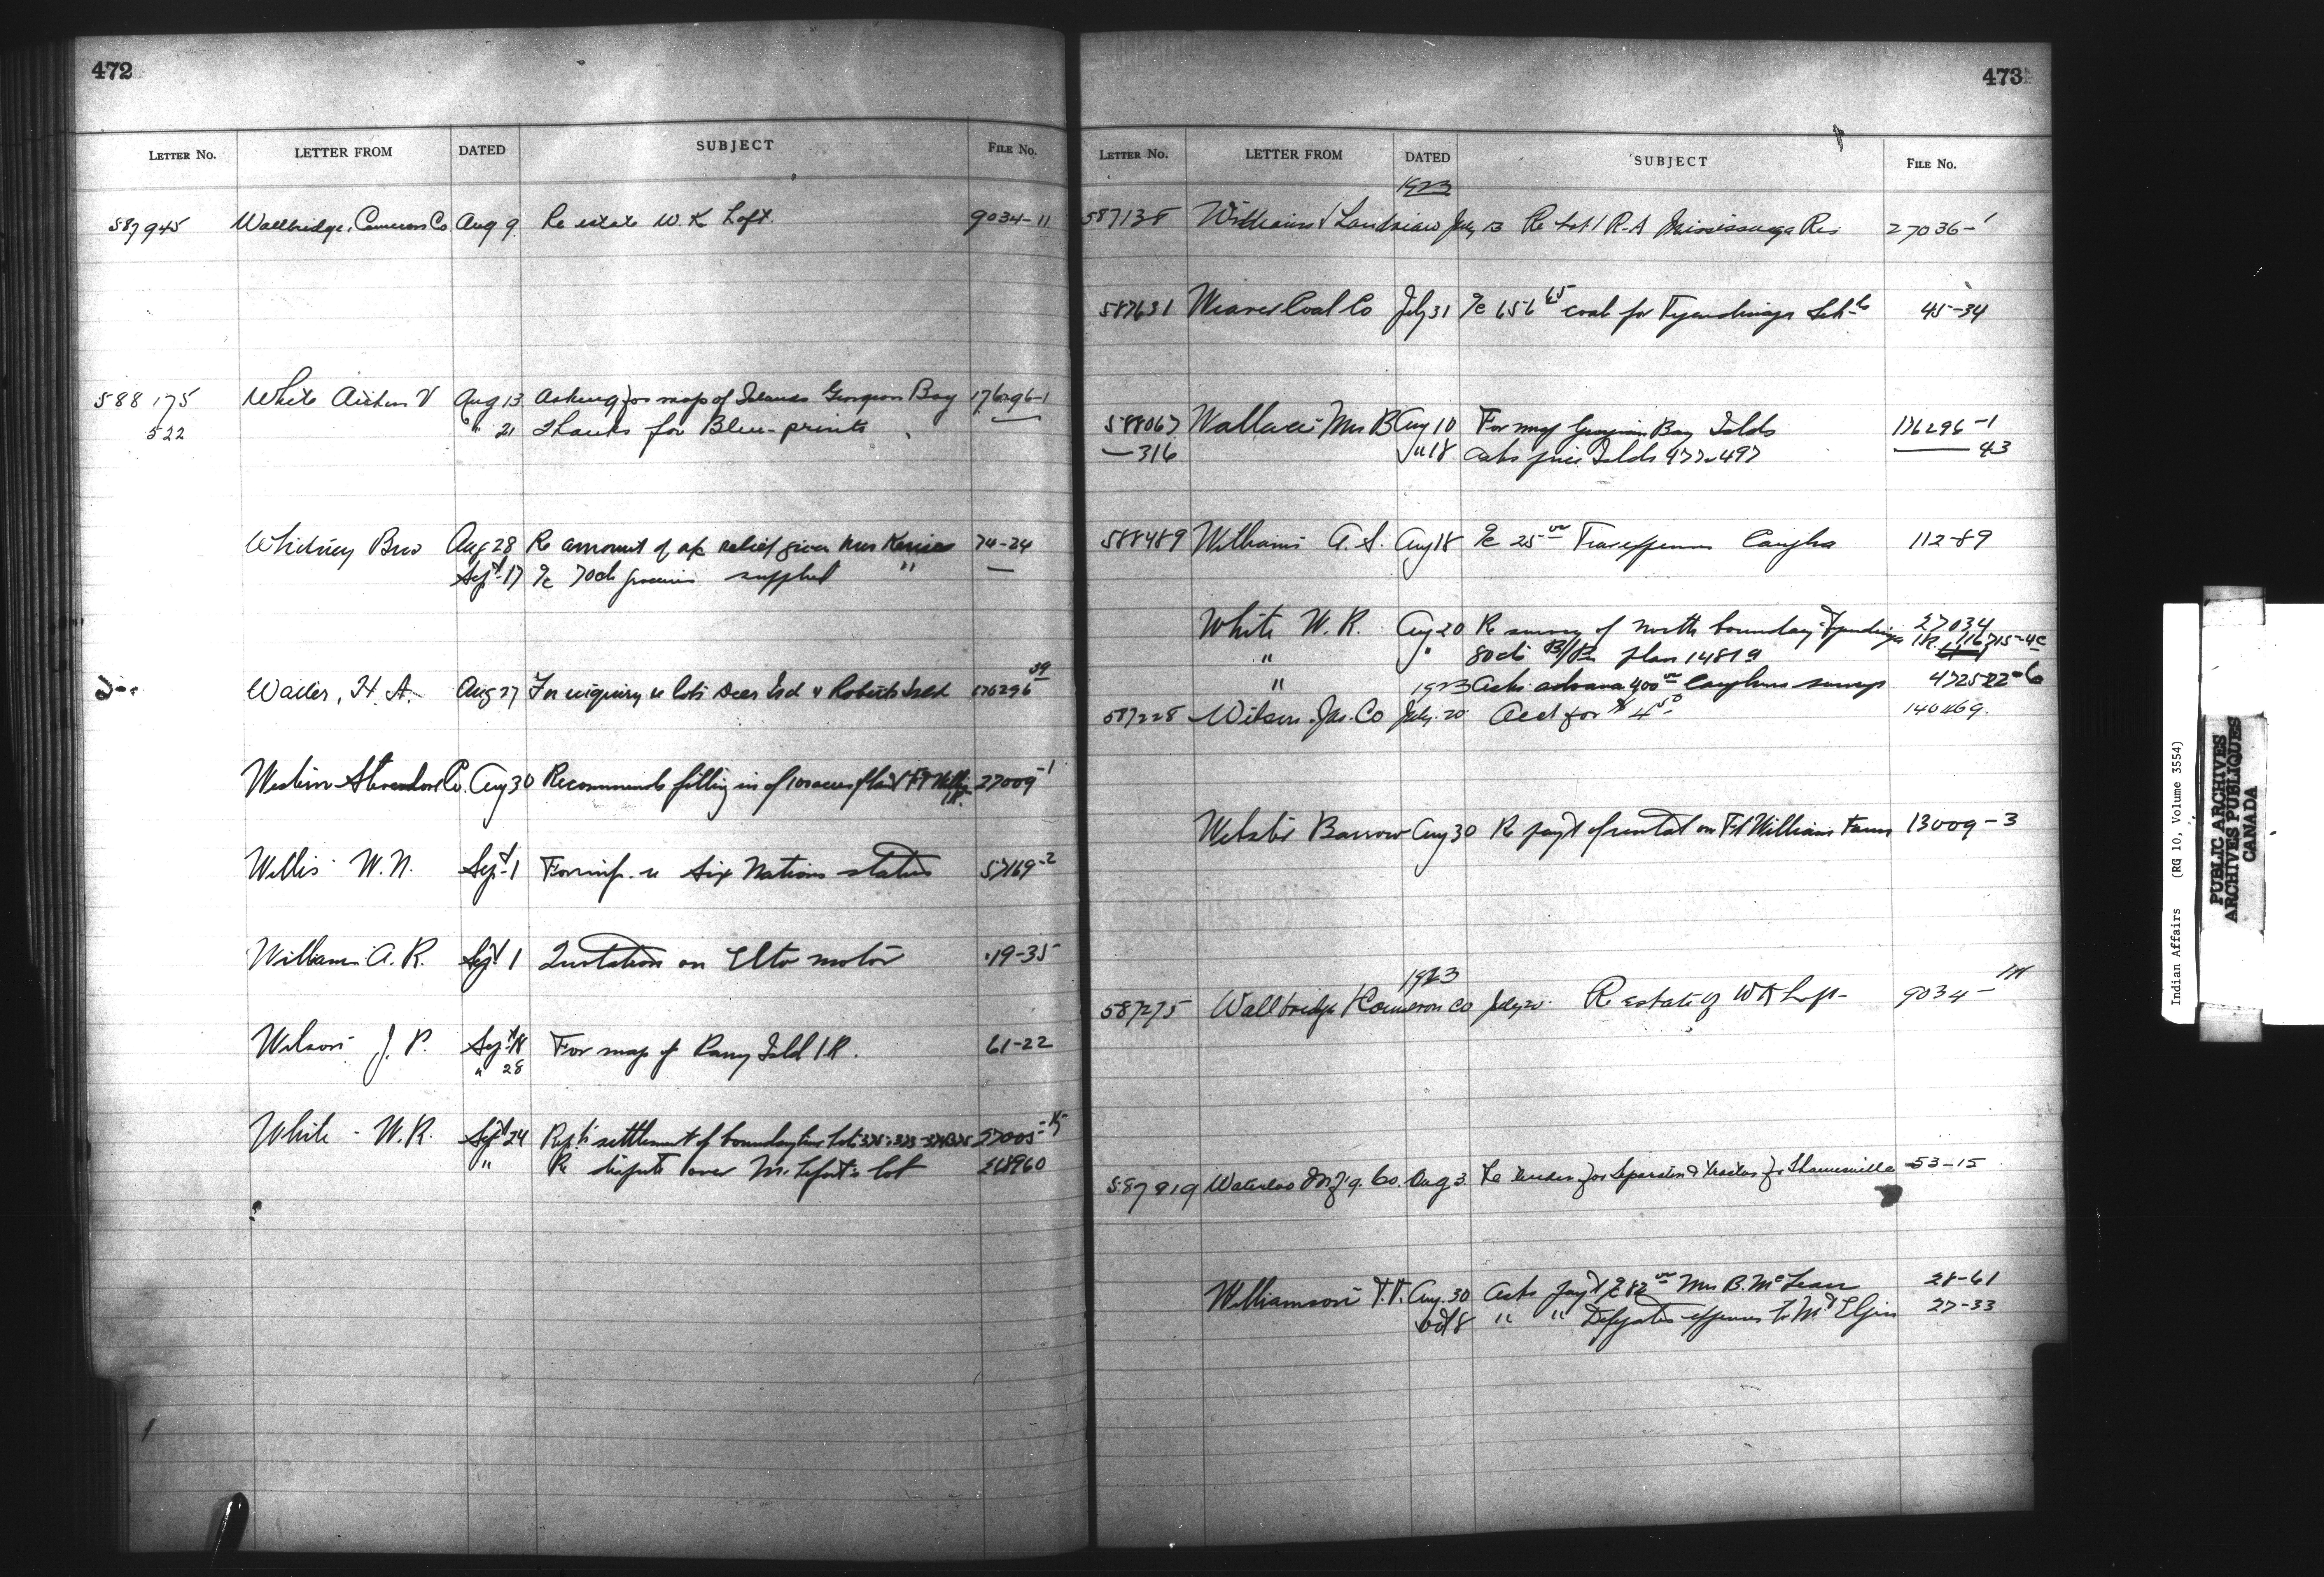 472
LETTER No. LETTER FROM DATED SUBJECT FILE No.
587945 Wallbridge, Cameron Co Aug 9 Re estate W. K Loft 9034-11
588175 White Aitken V Aug 13 Asking for map of Islands Georgian Bay 176296-1
522 " 21 Thanks for Blue-prints —
Whitney Bros Aug 28 Re amount of relief given Mrs 74-24
Sept 17 a/c 70cts groceries supplied " —
Waller, H. A. Aug 27 For enquiry re lots Deer Isd & Roberts Isld 176296-39
Western Stevedore Co. Aug 30 Recommends filling in of 100 acres of land Ft Willm I.R. 27009-1
Willis W. N. Sept 1 For inf. re Six Nations status 57169-2
William A. R. Sept 1 Quotation on Elto motor 19-35
Wilson J. P. Sept 18 For map of Parry Isld I R. 61-22
" 28
White - W. R. Sept 24 Rept settlement of boundary line lots 27005-15
" Re dispute over lot
473
LETTER No. LETTER FROM DATED SUBJECT FILE No.
1923
587138 Williams & July 13 Re Lot 1 R.A Mississauga Res 27036-1
587631 Weaver Coal Co July 31 a/c 656 65 coal for Tyendinaga Schls 45-34
588067 Wallace Mrs B Aug 10 For map Georgian Bay Islds 176296-1
—316 " 18 Asks price Islds 477 497 — 43
588489 Williams A. S. Aug 18 a/c 25 00 Trav expenses Caughna 112-89
White W. R. Aug 20 Re survey of north boundary Tyendinaga I.R. 27034
" " 80cts B/P plan 14819 116715-4C
" 1923 Asks advance 400 00 Caughna survey
587228 Wilson Jas. Co July 20 Acct for $ 4 50
Webster Barrow Aug 30 Re payt of rental on Ft William Farm 13009-3
1923
587275 Wallbridge Cameron Co July 20 Re estate of W K Loft 9034-
587819 Waterloo Mf'g. Co. Aug 3. Re tender for Separator & tractor for Thamesville 53-15
Williamson T.T. Aug. 30 Asks payt a/c 82 00 Mrs B. McLean 28-61
Oct 8 " " Delegates expenses to Mt Elgin 27-33
Indian Affairs (RG 10, Volume 3554)
PUBLIC ARCHIVES
ARCHIVES PUBLIQUES
CANADA